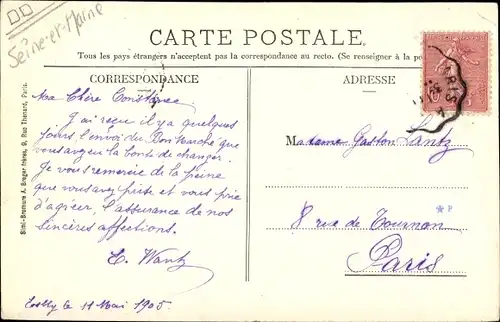 Seine-et-Marne
CARTE POSTALE.
Tous les pays étrangers n'acceptent pas la correspondance au recto. (Se renseigner à la po
CORRESPONDANCE
ADRESSE
Ma Chère Constance
J'ai reçu il y a quelques
jours l'envoi du Bon Marché que
vous avez eu la bonté de changer.
Je vous remercie de la peine
que vous avez prise et vous prie
d'agréer l'assurance de nos
sincères affections.
E. Wantz
11 Mai 1905
Madame Gaston Lantz
8 rue de Tournon
Paris
Simi-Bromure A. Breger frères, 9, Rue Thénard, Paris.